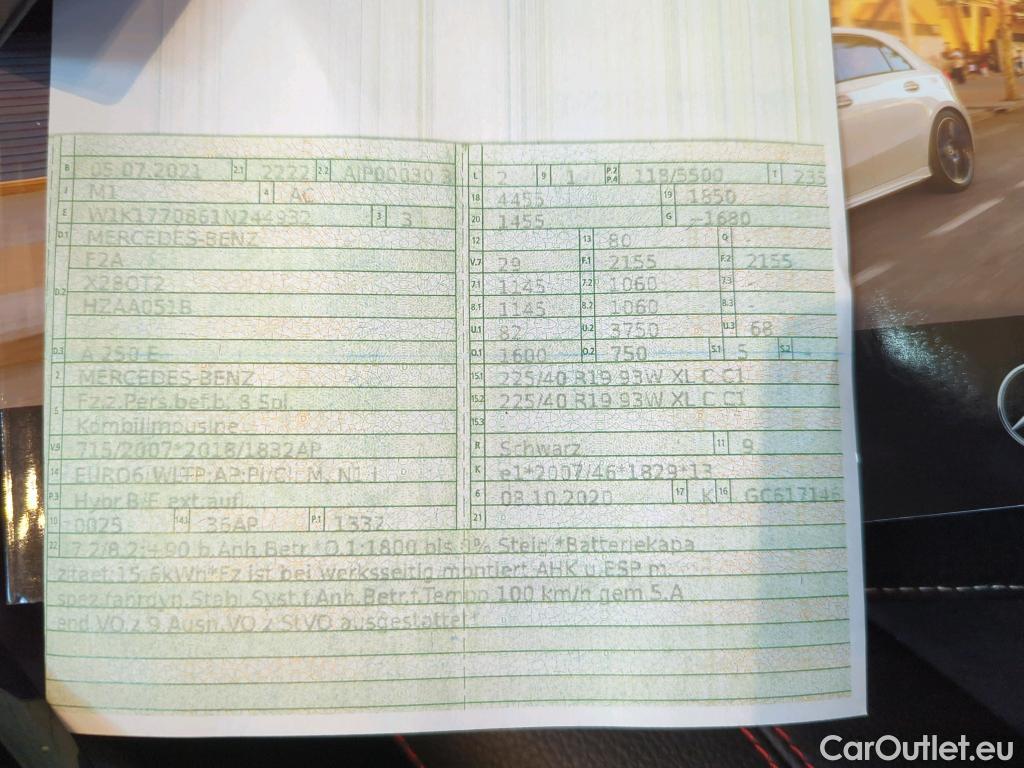 B 05.07.2021 2.1 2222 2.2 AIP00030 3
J M1 4 AC
E W1K1770861N244932 3 3
D.1 MERCEDES-BENZ
F2A
D.2 X280T2
HZAA051B
D.3 A 250 E
2 MERCEDES-BENZ
5 Fz.z.Pers.bef.b. 8 Spl.
Kombilimousine
V.9 715/2007*2018/1832AP
14 EURO6 WLTP AP
P.3 Hybr.B/E ext.aufl.
10 0025 14.1 36AP P.1 1332
L 2 9 1 P.2 P.4 118/5500 T 235
18 4455 19 1850
20 1455 G 1680
12 - 13 80 Q -
V.7 29 F.1 2155 F.2 2155
7.1 1145 7.2 1060 7.3 -
8.1 1145 8.2 1060 8.3 -
U.1 82 U.2 3750 U.3 68
O.1 1600 O.2 750 S.1 5 S.2 -
15.1 225/40 R19 93W XL C C1
15.2 225/40 R19 93W XL C C1
15.3 -
R Schwarz 11 9
K e1*2007/46*1829*13
6 08.10.2020 17 K 16 GC617146
21 -
22 7.2/8.2:+90 b.Anh.Betr.*O.1:1800 bis 8% Steig.*Batteriekapa
zitaet:15,6kWh*Fz ist bei werksseitig montiert.AHK u.ESP m.
spez.fahrdyn.Stabi.Syst.f.Anh.Betr.f.Tempo 100 km/h gem.5.A
end.VO.z.9.Ausn.VO.z.StVO ausgestattet*
CarOutlet.eu